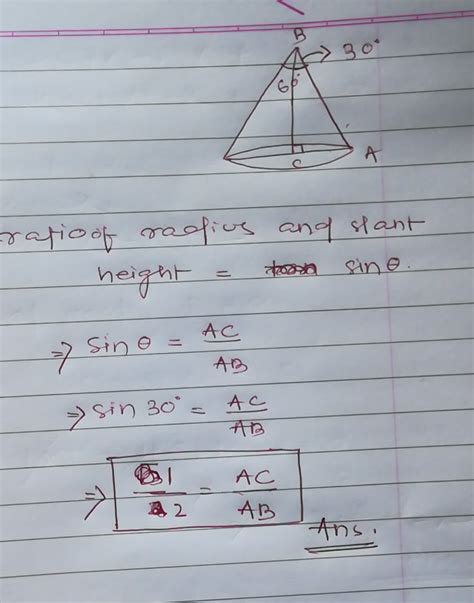 B
30°
60°
C
A
ratio of radius and slant
height = sin θ.
⇒ sin θ = AC/AB
⇒ sin 30° = AC/AB
⇒ 1/2 = AC/AB
Ans.